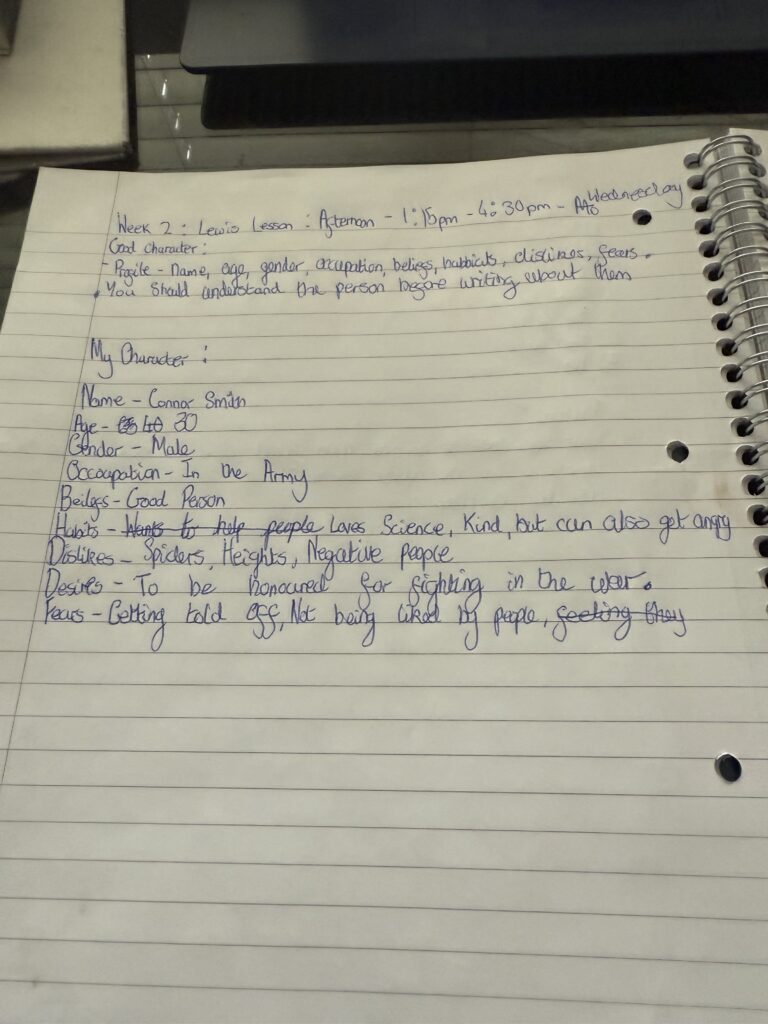 Week 2 : Lewis Lesson : Afternon - 1:15pm - 4:30pm - Wednesday
Good character :
- Profile - name, age, gender, occupation, beliefs, habbiats, dislikes, fears.
• You should understand the person before writing about them
My Character :
Name - Connor Smith
Age - 40 30
Gender - Male
Occoupation - In the Army
Beilefs - Good Person
Habits - Wants to help people Loves Science, Kind, but can also get angry
Dislikes - Spiders, Heights, Negative people
Desires - To be honoured for fighting in the war.
Fears - Getting told off, Not being liked by people, feeling they